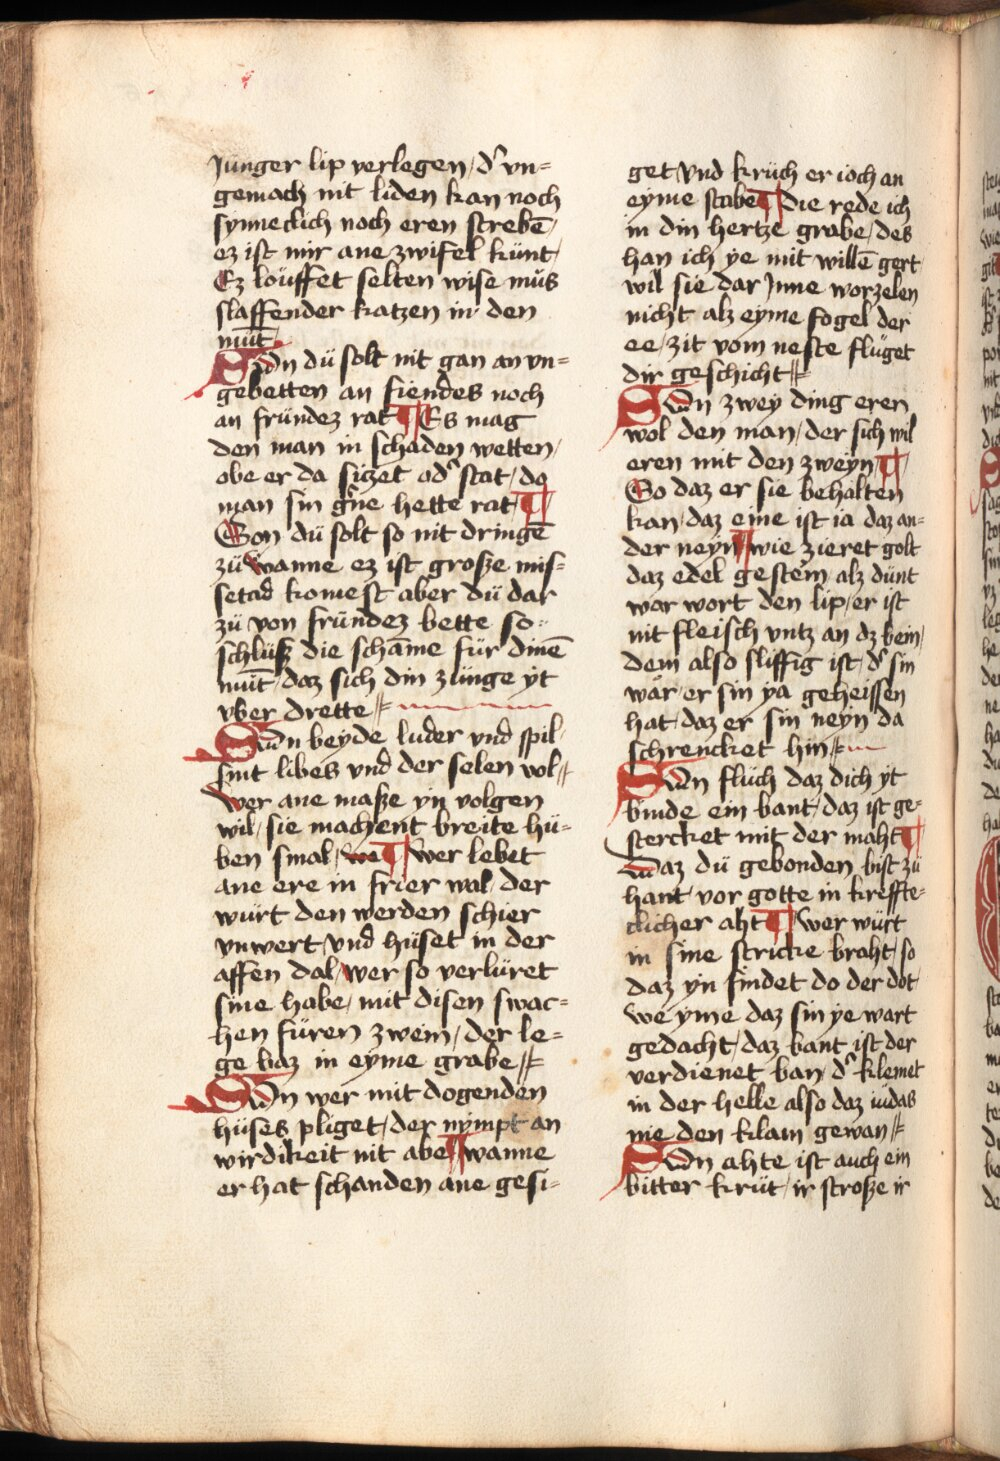 Jünger lip verlegen / d' vn=
gemach nit liden kan noch
synneclich noch eren strebē /
ez ist mir ane zwifel künt /
Ez löuffet selten wise müs
slaffender katzen in den
mūt
Sün dü solt nit gan an vn=
gebetten an fiendes noch
an fründez rat ¶ Es mag
den man in schaden wetten /
obe er da sizet od' stat / do
man sin gūe hette rat / ¶
Son dü solt so nit dringē
zü wanne ez ist große mis=
setad komest aber dü dar
zü von fründez bette so=
schlüß die schāme für dinē
mūt / daz sich din zünge yt
vber drette //
Sün beyde luder vnd spil
sint libes vnd der selen vol //
wer ane maße yn volgen
wil / sie machent breite hü=
ben smal / we ¶ wer lebet
ane ere in frier wal / der
würt den werden schier
vnwert / vnd hüset in der
affen dal / wer so verlüret
sine habe / mit disen swac=
hen füren zwein / der le=
ge baz in eyme grabe //
Sün wer mit dogenden
hüses pliget / der nympt an
wirdikeit nit abe ¶ wanne
er hat schanden ane gesi=
get vnd krüch er ioch an
eyme stabe ¶ die rede ich
in din hertze grabe / des
han ich ye mit willē gert
wil sie dar Jnne worzelen
nicht alz eyme fogel der
ee / zit vom neste flüget
dir geschicht //
Sün zwey ding eren
wol den man / der sich wil
eren mit den zweyn / ¶
So daz er sie behalten
kan / daz eine ist ia daz an=
der neyn ¶ wie zieret golt
daz edel gestein alz dünt
war wort den lip / er ist
nit fleisch vntz an dz bein /
dem also sliffig ist / d' sin
war / er sin ya geheissen
hat / daz er sin neyn da
schrencket hin //
Sün flüch daz dich yt
binde ein bant / daz ist ge=
stercket mit der maht ¶
Waz dü gebonden bist zü
hant vor gotte in kreffte=
clicher aht ¶ wer würt
in sine stricke braht / so
daz yn findet do der dot
we yme daz sin ye wart
gedacht / daz bant ist der
verdienet ban / d' klemet
in der helle also daz iudas
nie den klam gewan //
Sün ahte ist auch ein
bitter krüt / ir stroße ir